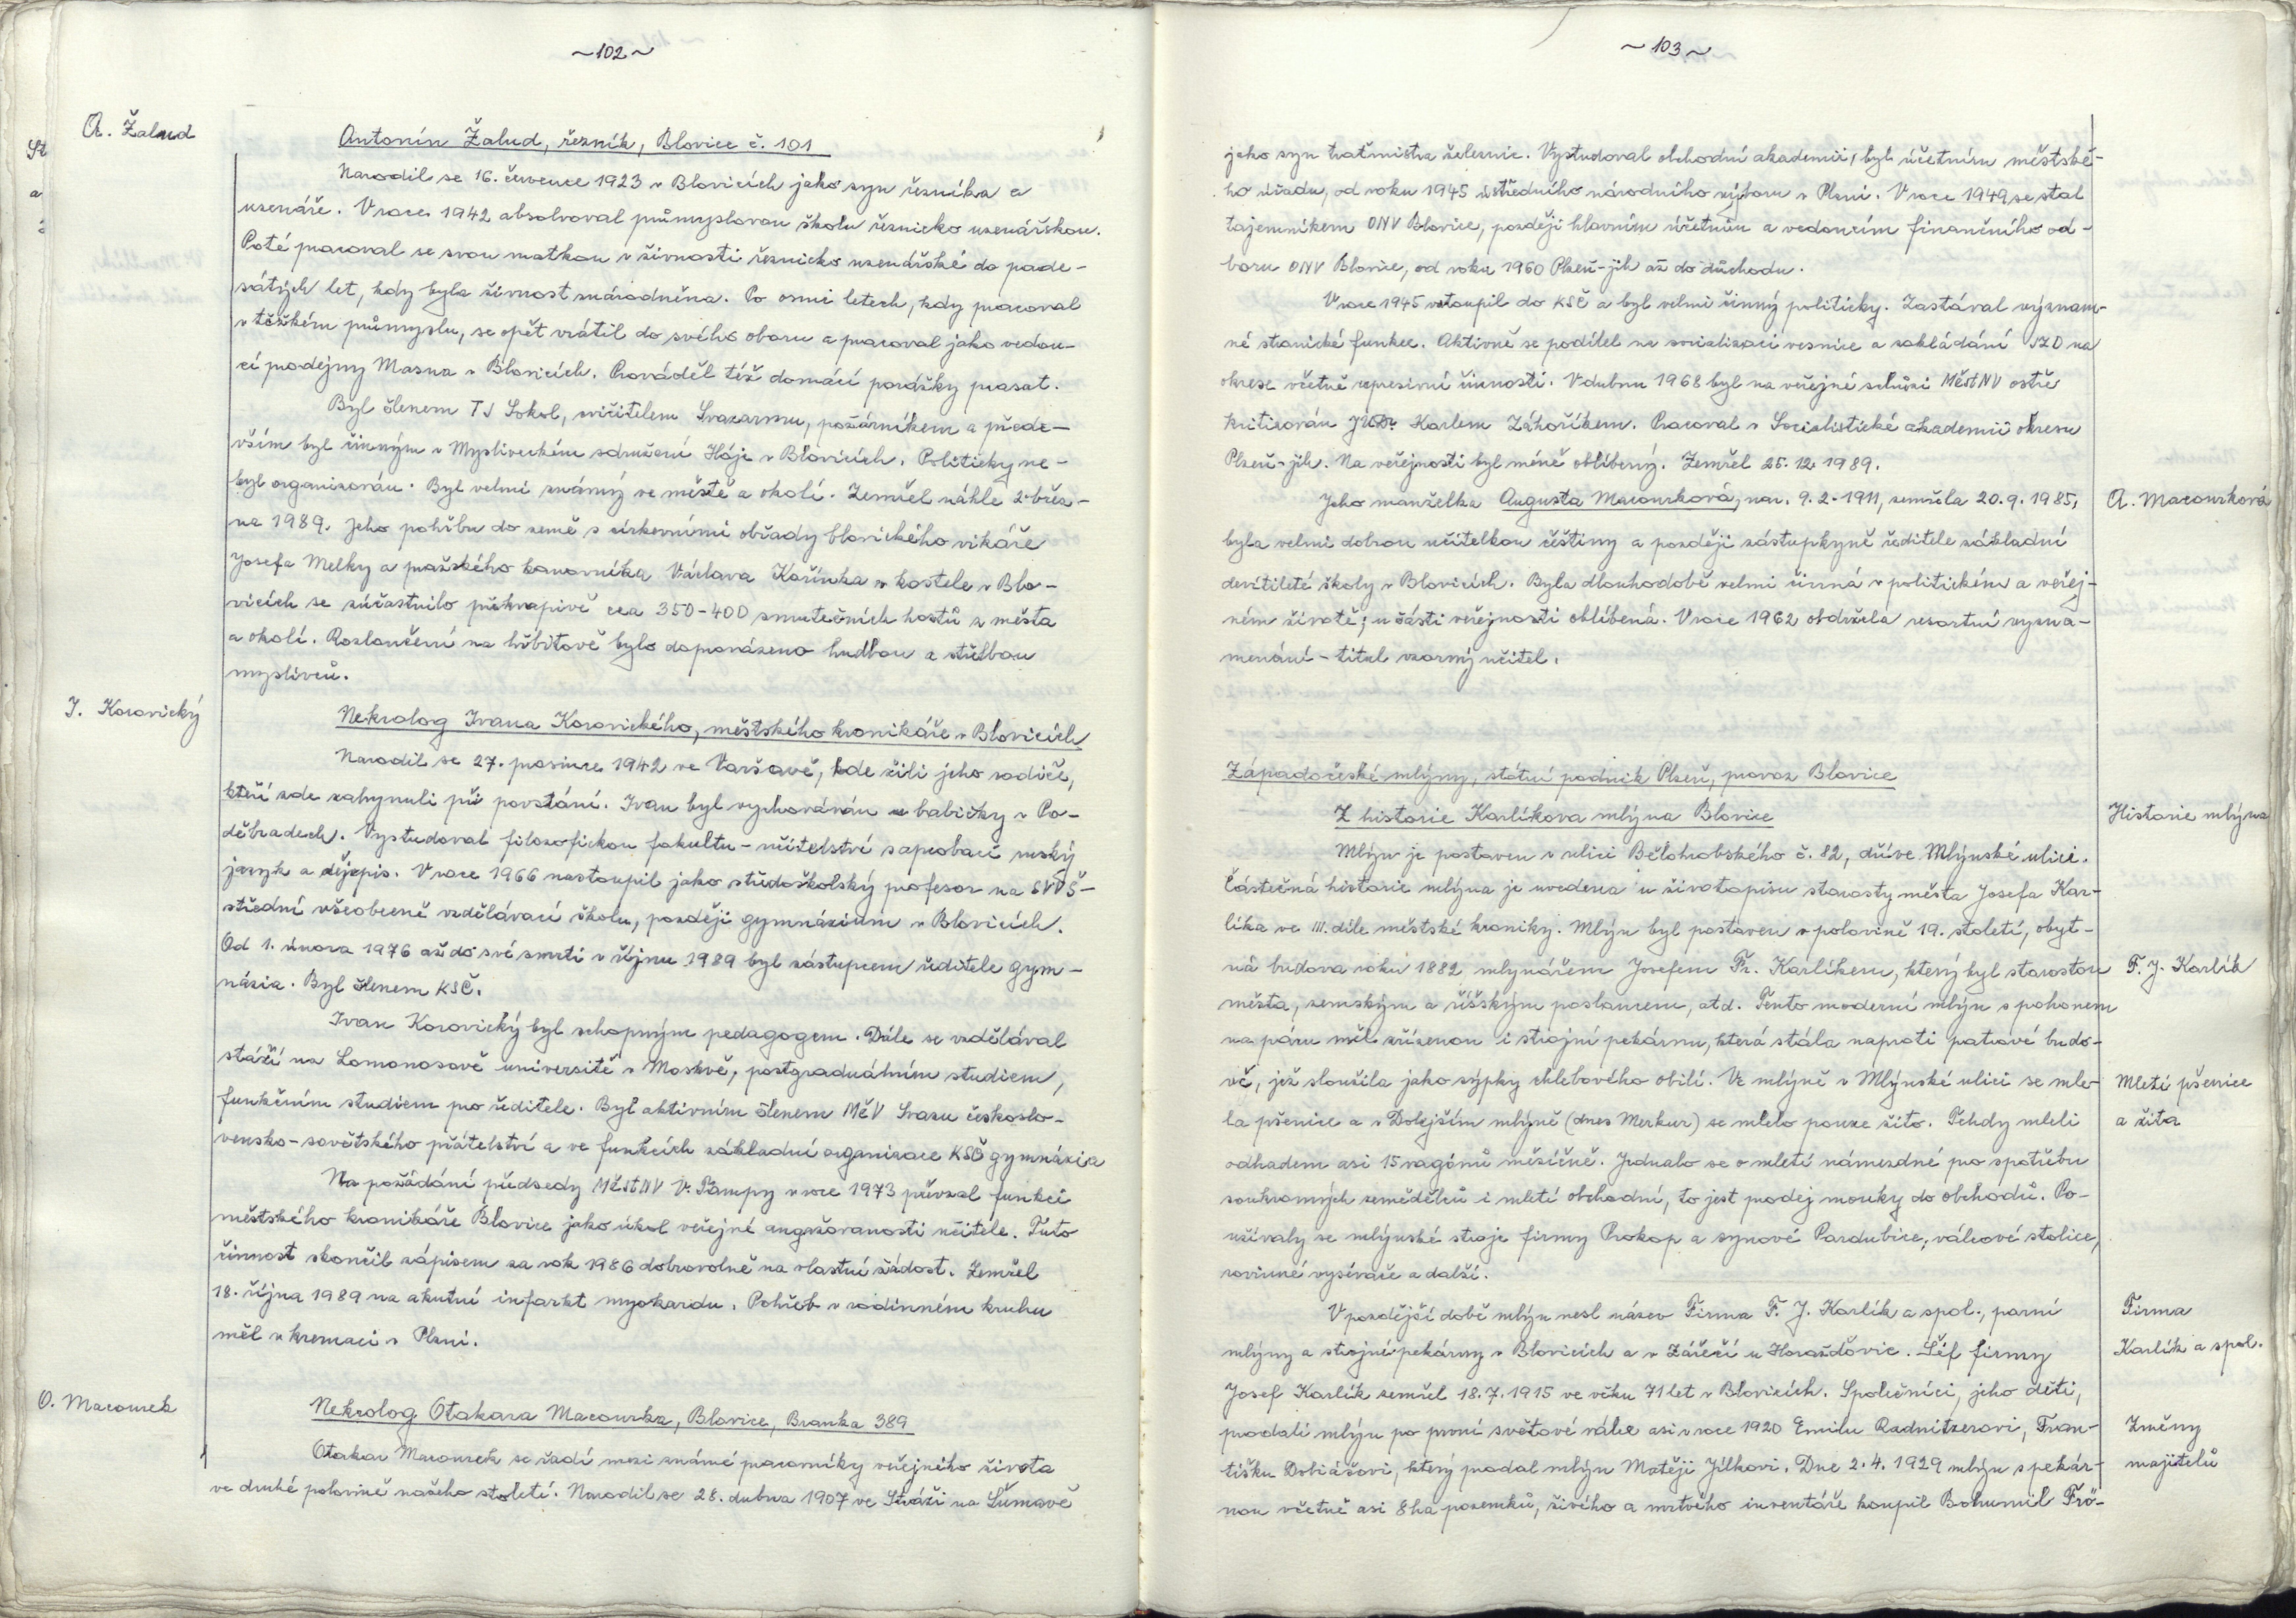 ~102~
A. Žalud
Antonín Žalud, řezník, Blovice č. 101
Narodil se 16. července 1923 v Blovicích jako syn řezníka a
uzenáře. V roce 1942 absolvoval průmyslovou školu řeznicko uzenářskou.
Poté pracoval se svou matkou v živnosti řeznicko uzenářské do pade-
sátých let, kdy byla živnost znárodněna. Po osmi letech, kdy pracoval
v těžkém průmyslu, se opět vrátil do svého oboru a pracoval jako vedou-
cí prodejny Masna v Blovicích. Prováděl též domácí porážky prasat.
Byl členem TJ Sokol, cvičitelem Svazarmu, požárníkem a přede-
vším byl činným v Mysliveckém sdružení Háje v Blovicích. Politicky ne-
byl organizován. Byl velmi známý ve městě a okolí. Zemřel náhle 2. břez-
na 1989. Jeho pohřbu do země s církevními obřady blovického vikáře
Josefa Melky a pražského kanovníka Václava Kařínka v kostele v Blo-
vicích se zúčastnilo překvapivě cca 350-400 smutečních hostů z města
a okolí. Rozloučení na hřbitově bylo doprovázeno hudbou a střelbou
myslivců.
I. Korovický
Nekrolog Ivana Korovického, městského kronikáře v Blovicích
Narodil se 27. prosince 1942 ve Varšavě, kde žili jeho rodiče,
kteří zde zahynuli při povstání. Ivan byl vychováván u babičky v Po-
děbradech. Vystudoval filozofickou fakultu - učitelství s aprobací ruský
jazyk a dějepis. V roce 1966 nastoupil jako středoškolský profesor na SVVŠ-
střední všeobecně vzdělávací školu, později gymnázium v Blovicích.
Od 1. února 1976 až do své smrti v říjnu 1989 byl zástupcem ředitele gym-
názia. Byl členem KSČ.
Ivan Korovický byl schopným pedagogem. Dále se vzdělával
stáží na Lomonosově universitě v Moskvě, postgraduálním studiem,
funkčním studiem pro ředitele. Byl aktivním členem MěV Svazu českoslo-
vensko-sovětského přátelství a ve funkcích základní organizace KSČ gymnázia
Na požádání předsedy MěstNV V. Pampy v roce 1973 převzal funkci
městského kronikáře Blovice jako úkol veřejné angažovanosti učitele. Tuto
činnost skončil zápisem za rok 1986 dobrovolně na vlastní žádost. Zemřel
18. října 1989 na akutní infarkt myokardu. Pohřeb v rodinném kruhu
měl v kremaci v Plzni.
O. Macourek
Nekrolog Otakara Macourka, Blovice, Branka 389
Otakar Macourek se řadí mezi známé pracovníky veřejného života
ve druhé polovině našeho století. Narodil se 28. dubna 1907 ve Stráži na Šumavě
~103~
jako syn traťmistra železnic. Vystudoval obchodní akademii, byl účetním městské-
ho úřadu, od roku 1945 ústředního národního výboru v Plzni. V roce 1949 se stal
tajemníkem ONV Blovice, později hlavním účetním a vedoucím finančního od-
boru ONV Blovice, od roku 1960 Plzeň-jih až do důchodu.
V roce 1945 vstoupil do KSČ a byl velmi činný politicky. Zastával význam-
né stranické funkce. Aktivně se podílel na socializaci vesnice a zakládání JZD na
okrese včetně represivní činnosti. V dubnu 1968 byl na veřejné schůzi MěstNV ostře
kritizován JUDr. Karlem Záhoříkem. Pracoval v Socialistické akademii okresu
Plzeň-jih. Na veřejnosti byl méně oblíbený. Zemřel 25. 12. 1989.
Jeho manželka Augusta Macourková, nar. 9. 2. 1911, zemřela 20. 9. 1985,
A. Macourková
byla velmi dobrou učitelkou češtiny a později zástupkyně ředitele základní
devítileté školy v Blovicích. Byla dlouhodobě velmi činná v politickém a veřej-
ném životě; u části veřejnosti oblíbená. V roce 1962 obdržela resortní vyzna-
menání - titul vzorný učitel.
Západočeské mlýny, státní podnik Plzeň, provoz Blovice
Z historie Karlíkova mlýna Blovice
Historie mlýna
Mlýn je postaven v ulici Bělohrobského č. 82, dříve Mlýnské ulici.
Částečná historie mlýna je uvedena u životopisu starosty města Josefa Kar-
líka ve III. díle městské kroniky. Mlýn byl postaven v polovině 19. století, obyt-
ná budova roku 1882 mlynářem Josefem Fr. Karlíkem, který byl starostou
F. J. Karlík
města, zemským a říšským poslancem, atd. Tento moderní mlýn s pohonem
na páru měl zřízenou i strojní pekárnu, která stála naproti patrové budo-
vě, jež sloužila jako sýpky chlebového obilí. Ve mlýně v Mlýnské ulici se mle-
Mletí pšenice
la pšenice a v Dolejším mlýně (dnes Merkur) se mlelo pouze žito. Tehdy mleli
a žita
odhadem asi 15 vagónů měsíčně. Jednalo se o mletí námezdné po spotřebu
soukromých zemědělců i mletí obchodní, to jest prodej mouky do obchodů. Po-
užívaly se mlýnské stroje firmy Prokop a synové Pardubice, válcové stolice,
rovinné vysévače a další.
V pozdější době mlýn nesl název Firma F. J. Karlík a spol., parní
Firma
mlýny a strojní pekárny v Blovicích a v Záříčí u Horažďovic. Šéf firmy
Karlík a spol.
Josef Karlík zemřel 18. 7. 1915 ve věku 71 let v Blovicích. Společníci, jeho děti,
prodali mlýn po první světové válce asi v roce 1920 Emilu Radnitzerovi, Fran-
Změny
tišku Dobiášovi, který prodal mlýn Matěji Jílkovi. Dne 2. 4. 1929 mlýn s pekár-
majitelů
nou včetně asi 8 ha pozemků, živého a mrtvého inventáře koupil Bohumil Frö-